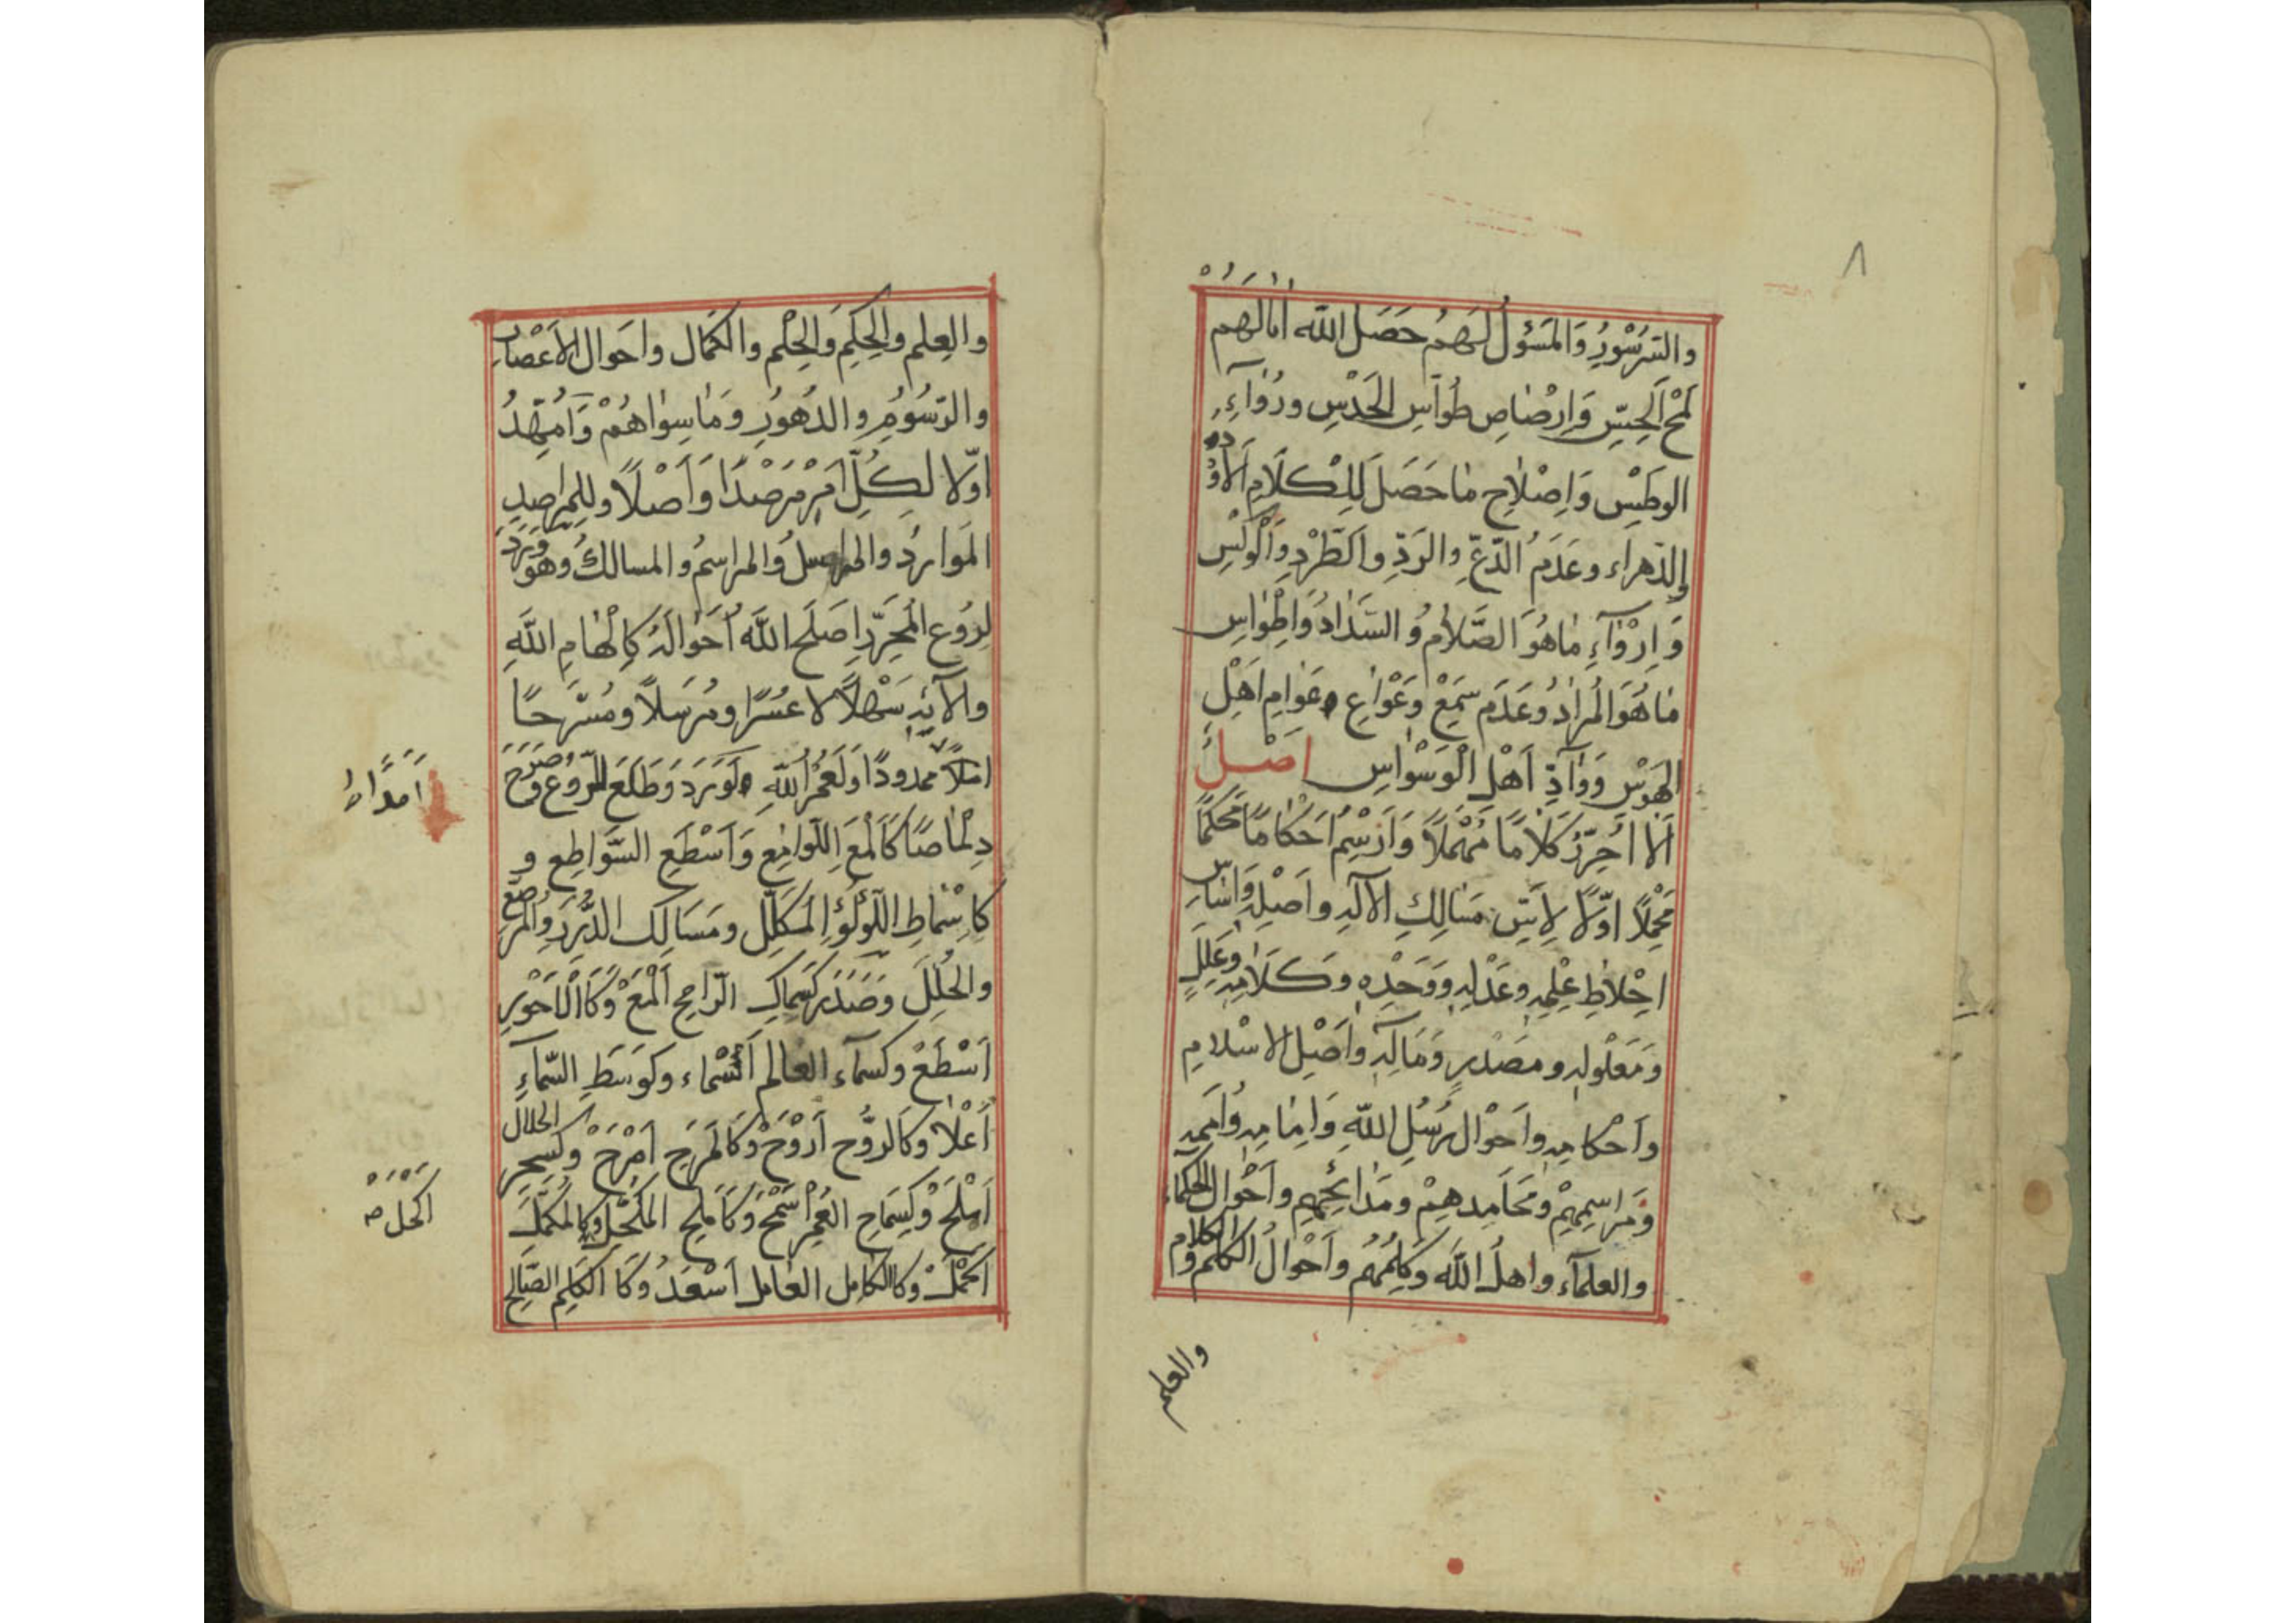 ٨
والسرسور والمسؤل لهم حصل الله امالهم
لمح الحس وارصاص طواس الحدس ورواء
الوطيس واصلاح ما حصل للكلام الاود
والدهراء وعدم الدع والرد والطرد والولس
وارواء ما هو الصلام والسداد واطواس
ما هو المراد وعدم سمع وعواع وعوام اهل
الهوس وواد اهل الوسواس اصل
الا احرر كلاما مهملا وارسم احكاما محكما
محملا اولا لاس مسالك الاله واصل واساس
احلاط علمه وعدله ووحده وكلامه وعلل
ومعلوله ومصدر وماله واصل الاسلام
واحكامه واحوال رسل الله وامامه وامم
ومراسمهم ومحامدهم ومدائحهم واحوال الحكماء
والعلماء واهل الله وكلمهم واحوال الكلم والكلام
والعلم
والعلم والحكم والحلم والكمال واحوال الاعصار
والرسوم والدهور وما سواهم وامهد
اولا لكل امر مرصدا واصلا وللمراصد
الموارد والمراسل والمراسم والمسالك وهو ورد
لروع المحرر اصلح الله احواله كالهام الله
والائه سهلا لا عسرا ومرسلا ومسرحا
املاء ممدودا ولعمر الله لو ورد وطلع للروع وصرح
دلماصا كالمع اللوامع واسطع السواطع و
كاسماط اللؤلؤ المكلل ومسالك الدرر والمرصع
والحلل وصدر كسماك الرامح المع وكالاحور
اسطع وكسماء العالم اسماء وكوسط السماء
اعلا وكالروح اروح وكالمرح امرح وكسحر الحلال
املح وكسماح العمر اسمح وكاملح المكحل وكالمكمل
اكمل وكالكامل العامل اسعد وكا الكلم الصالح
امدادا
اكحل صح